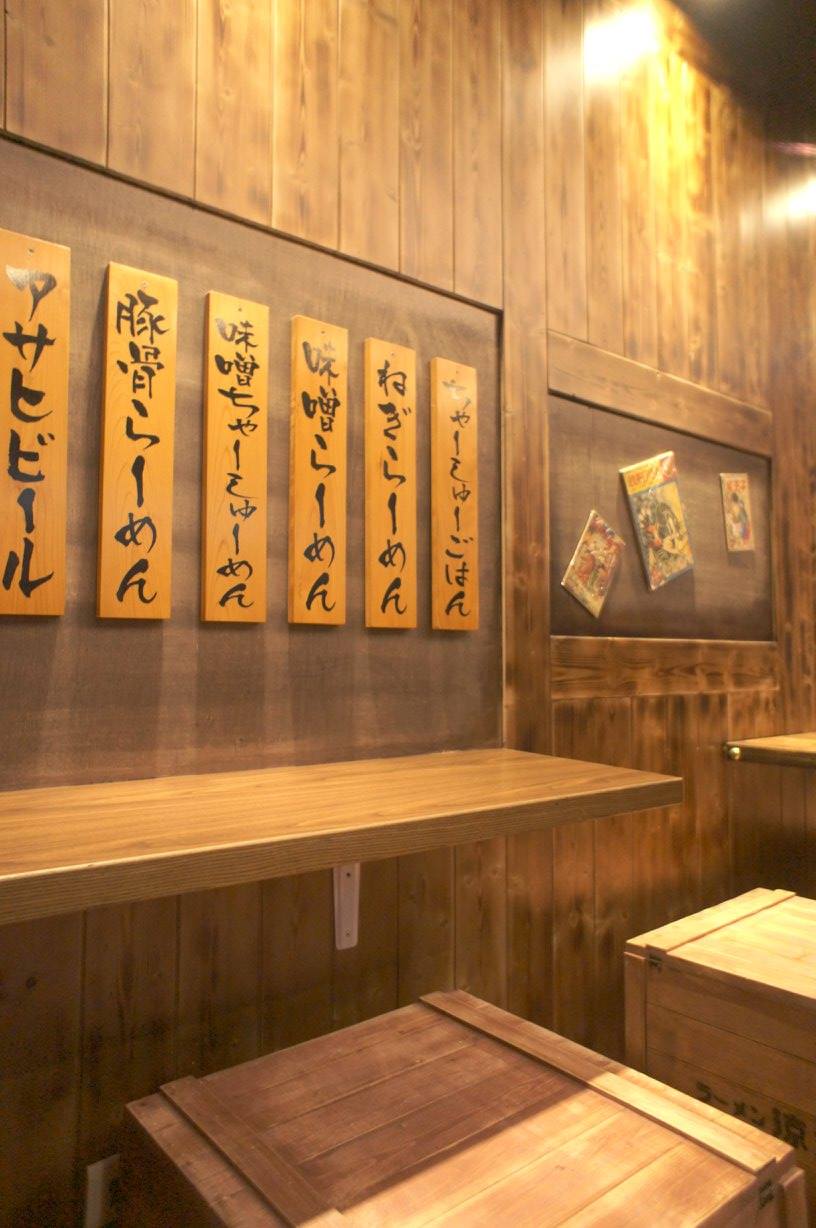 アサヒビール
豚骨らーめん
味噌ちゃーしゅーめん
味噌らーめん
ねぎらーめん
ちゃーしゅーごはん
ラーメン 涼